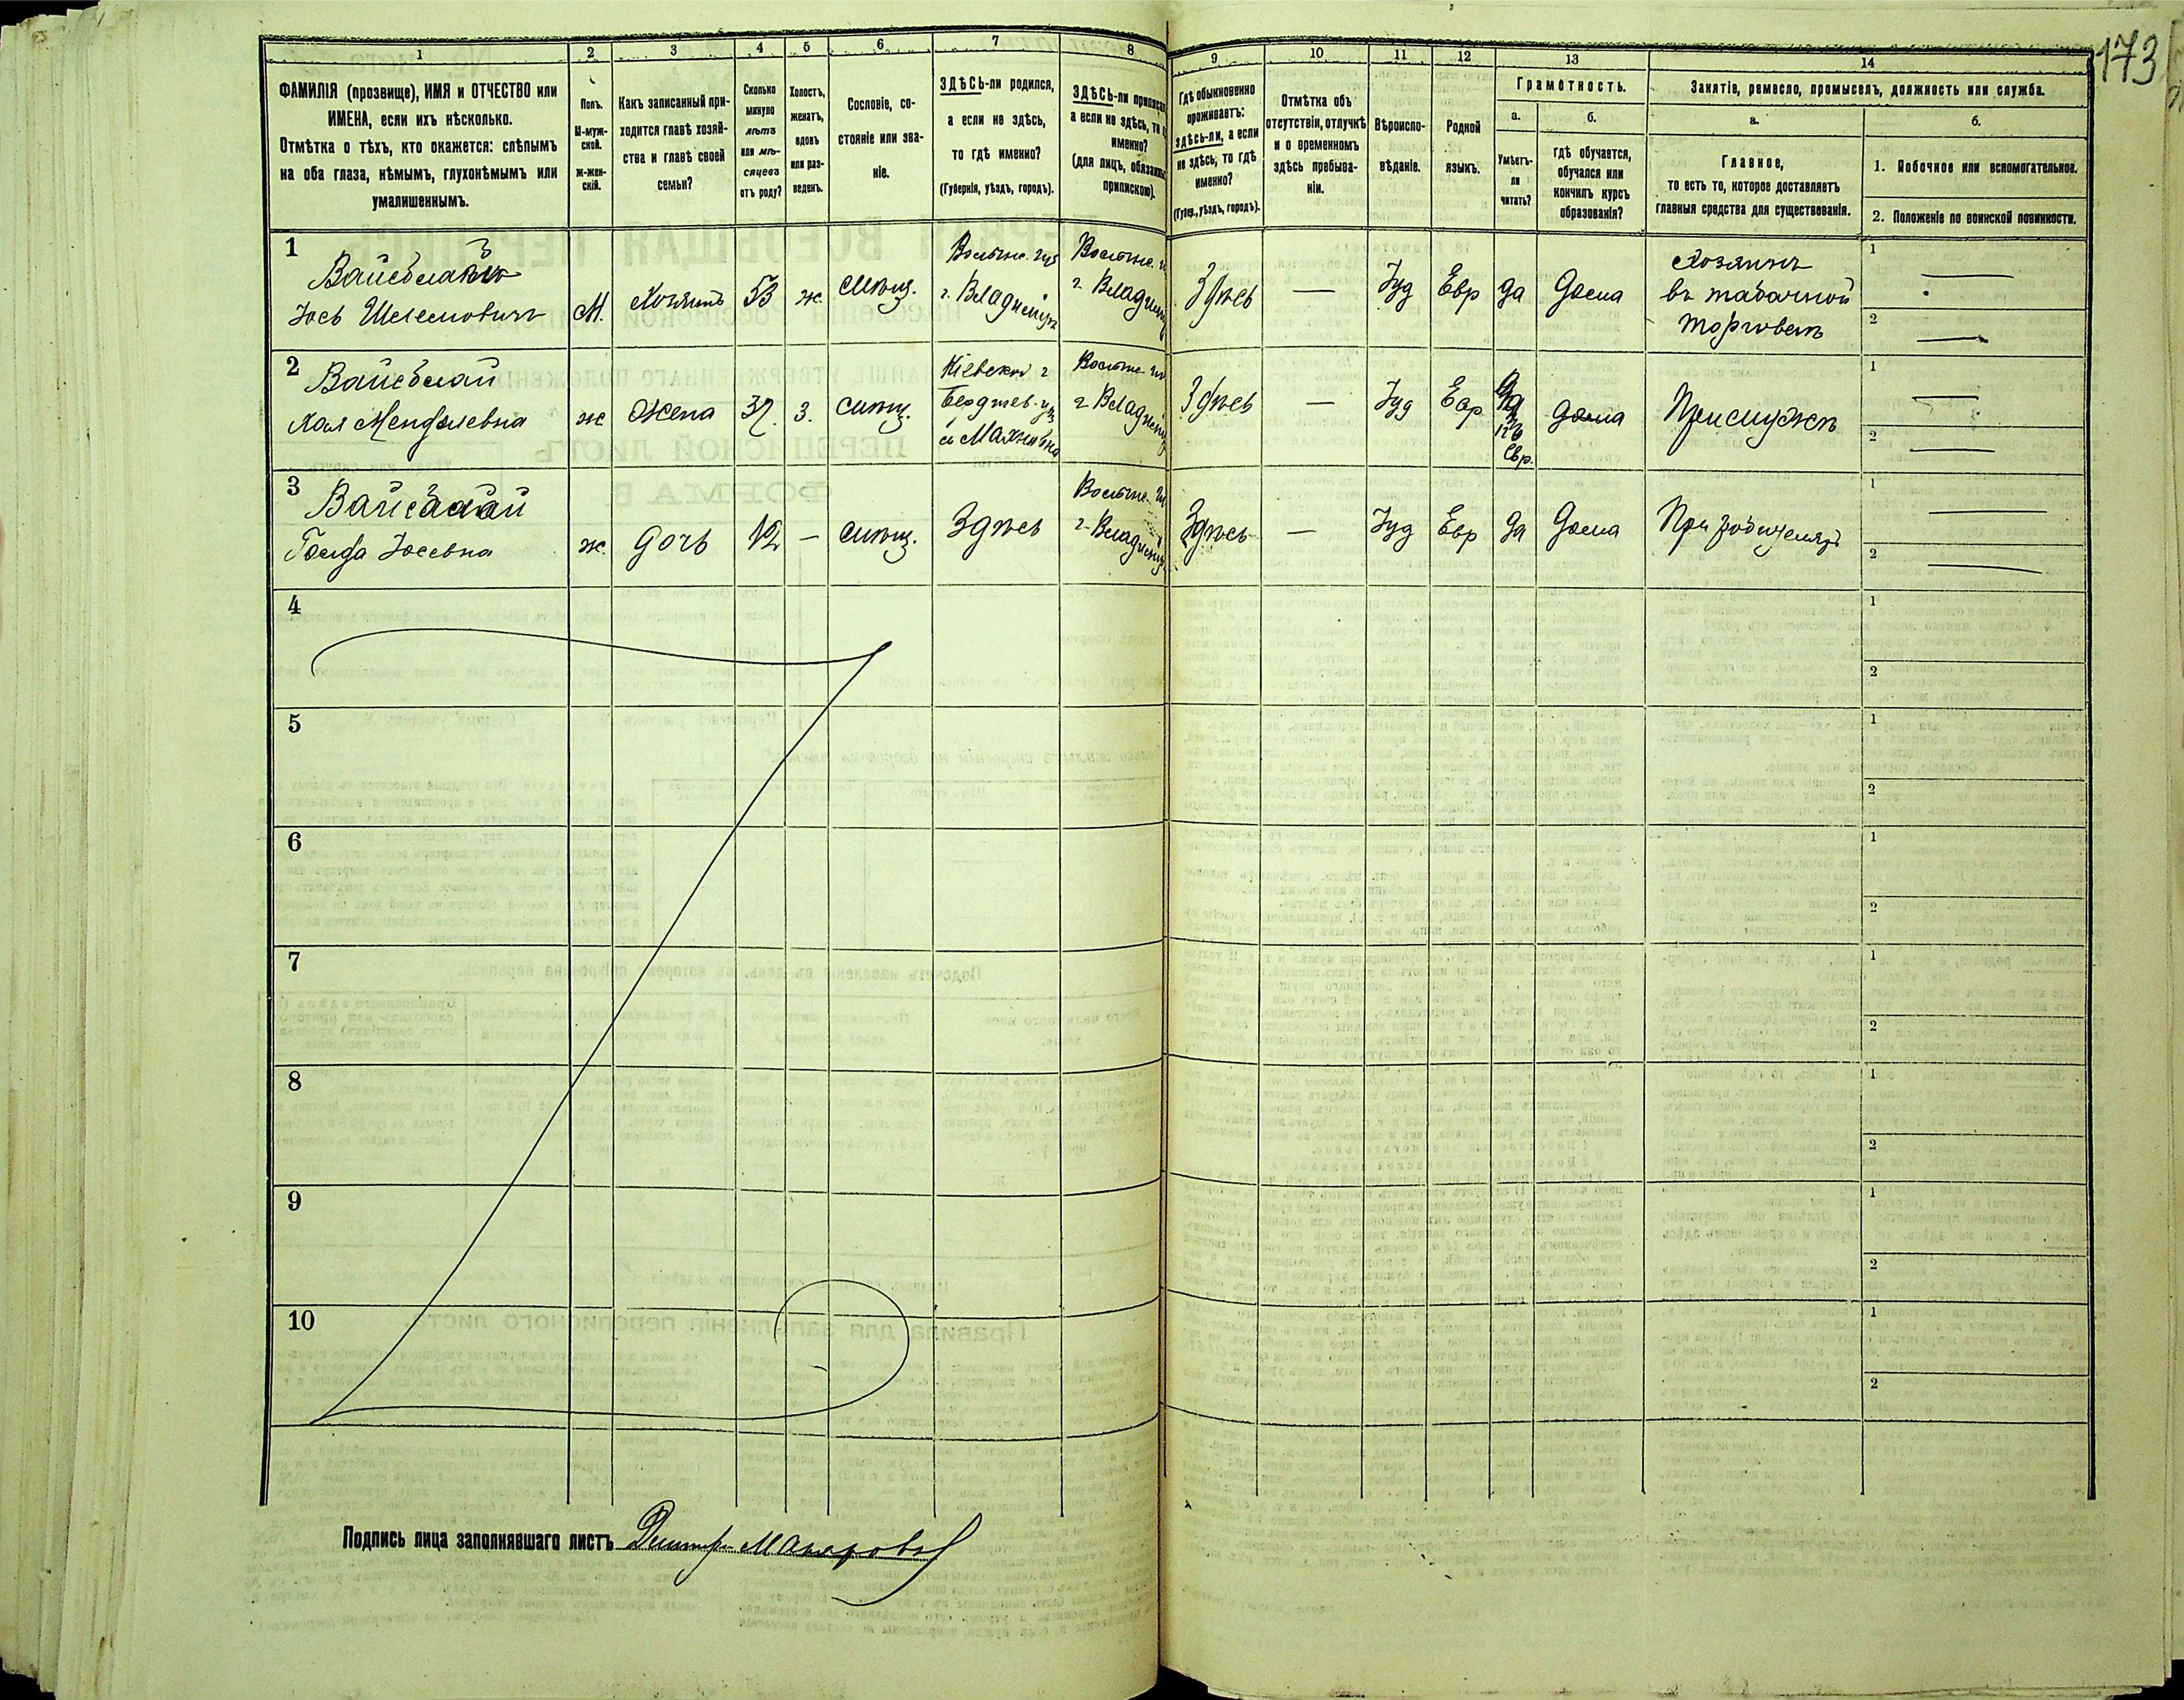 173
1
2
3
4
5
6
7
8
9
10
11
12
13
14
ФАМИЛІЯ (прозвище), ИМЯ и ОТЧЕСТВО или
ИМЕНА, если ихъ нѣсколько.
Отмѣтка о тѣхъ, кто окажется: слѣпымъ
на оба глаза, нѣмымъ, глухонѣмымъ или
умалишеннымъ.
Полъ.
М-муж-
ской.
Ж-жен-
скій.
Какъ записанный при-
ходится главѣ хозяй-
ства и главѣ своей
семьи?
Сколько
минуло
лѣтъ
или мѣ-
сяцевъ
отъ роду?
Холостъ,
женатъ,
вдовъ
или раз-
веденъ.
Сословіе, со-
стояніе или зва-
ніе.
ЗДѢСЬ-ли родился,
а если не здѣсь,
то гдѣ именно?
(Губернія, уѣздъ, городъ).
ЗДѢСЬ-ли приписанъ
а если не здѣсь, то
именно?
(для лицъ,
припискою).
Гдѣ обыкновенно
проживаетъ:
здѣсь-ли, а если
не здѣсь, то гдѣ
именно?
(Губер., уѣздъ, городъ).
Отмѣтка объ
отсутствіи, отлучкѣ
и о временномъ
здѣсь пребыва-
ніи.
Вѣроиспо-
вѣданіе.
Родной
языкъ.
Грамотность.
а.
Умѣетъ-
ли
читать?
б.
гдѣ обучается,
обучался или
кончилъ курсъ
образованія?
Занятіе, ремесло, промыселъ, должность или служба.
а.
Главное,
то есть то, которое доставляетъ
главныя средства для существованія.
б.
1. Побочное или вспомогательное.
2. Положеніе по воинской повинности.
1
Іось
М.
Хозяинъ
53
ж.
мѣщ.
Волынс. губ
г. Владиміръ
Волынс.
г.
Здѣсь
—
Іуд
Евр
да
дома
Хозяинъ
въ табачной
торговлѣ
1 —
2 —
2
Хая Менделевна
ж
Жена
37.
з.
мѣщ.
Кіевской г
Бердичев. у
м Махновка
Волынс.
г
Здѣсь
—
Іуд
Евр
да
Евр.
дома
При мужѣ
1 —
2 —
3
Голда Іосевна
ж.
дочь
12
—
мѣщ.
Здѣсь
Волынс.
г.
Здѣсь
—
Іуд
Евр
да
дома
При родителяхъ
1 —
2 —
4
1
2
5
1
2
6
1
2
7
1
2
8
1
2
9
1
2
10
1
2
Подпись лица заполнявшаго листъ